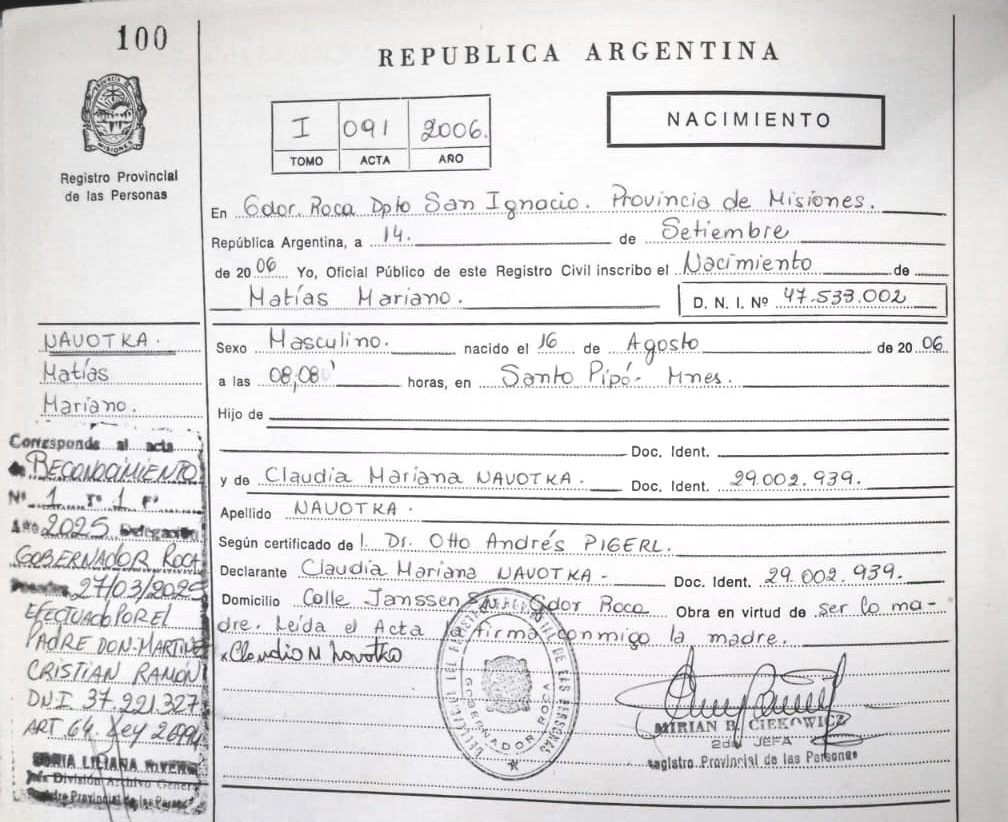 100
REPUBLICA ARGENTINA
I 091 2006.
TOMO ACTA AÑO
NACIMIENTO
PROVINCIA DE
MISIONES
Registro Provincial
de las Personas
En Gdor. Roca Dpto San Ignacio. Provincia de Misiones.
República Argentina, a 14. de Setiembre
de 2006 Yo, Oficial Público de este Registro Civil inscribo el Nacimiento de
Matías Mariano. D. N. I. Nº 47.533.002
NAVOTKA.
Matías
Mariano.
Sexo Masculino. nacido el 16 de Agosto de 2006.
a las 08,08' horas, en Santo Pipó- Mnes.
Hijo de
Doc. Ident.
y de Claudia Mariana NAVOTKA. Doc. Ident. 29.002.939.
Apellido NAVOTKA.
Según certificado de l. Dr. Otto Andrés PIGERL.
Declarante Claudia Mariana NAVOTKA- Doc. Ident. 29.002.939.
Domicilio Calle Janssen Gdor Roca Obra en virtud de ser la ma-
dre. Leída el Acta la firma conmigo la madre.
Claudia M Navotka
Corresponde al acta
de RECONOCIMIENTO
Nº 1 Tº 1 Fº
Año 2025 Delegación
GOBERNADOR ROCA
27/03/2025
EFECTUADO POR EL
PADRE DON MARTINEZ
CRISTIAN RAMÓN
DNI 37.221.327
ART 64. Ley 26994
LILIANA RIVERO
Jefe División Archivo General
Registro Provincial de las Personas
DE LAS PERSONAS
GOBERNADOR ROCA
MIRIAN B. CIEKOWICZ
2da JEFA
Registro Provincial de las Personas